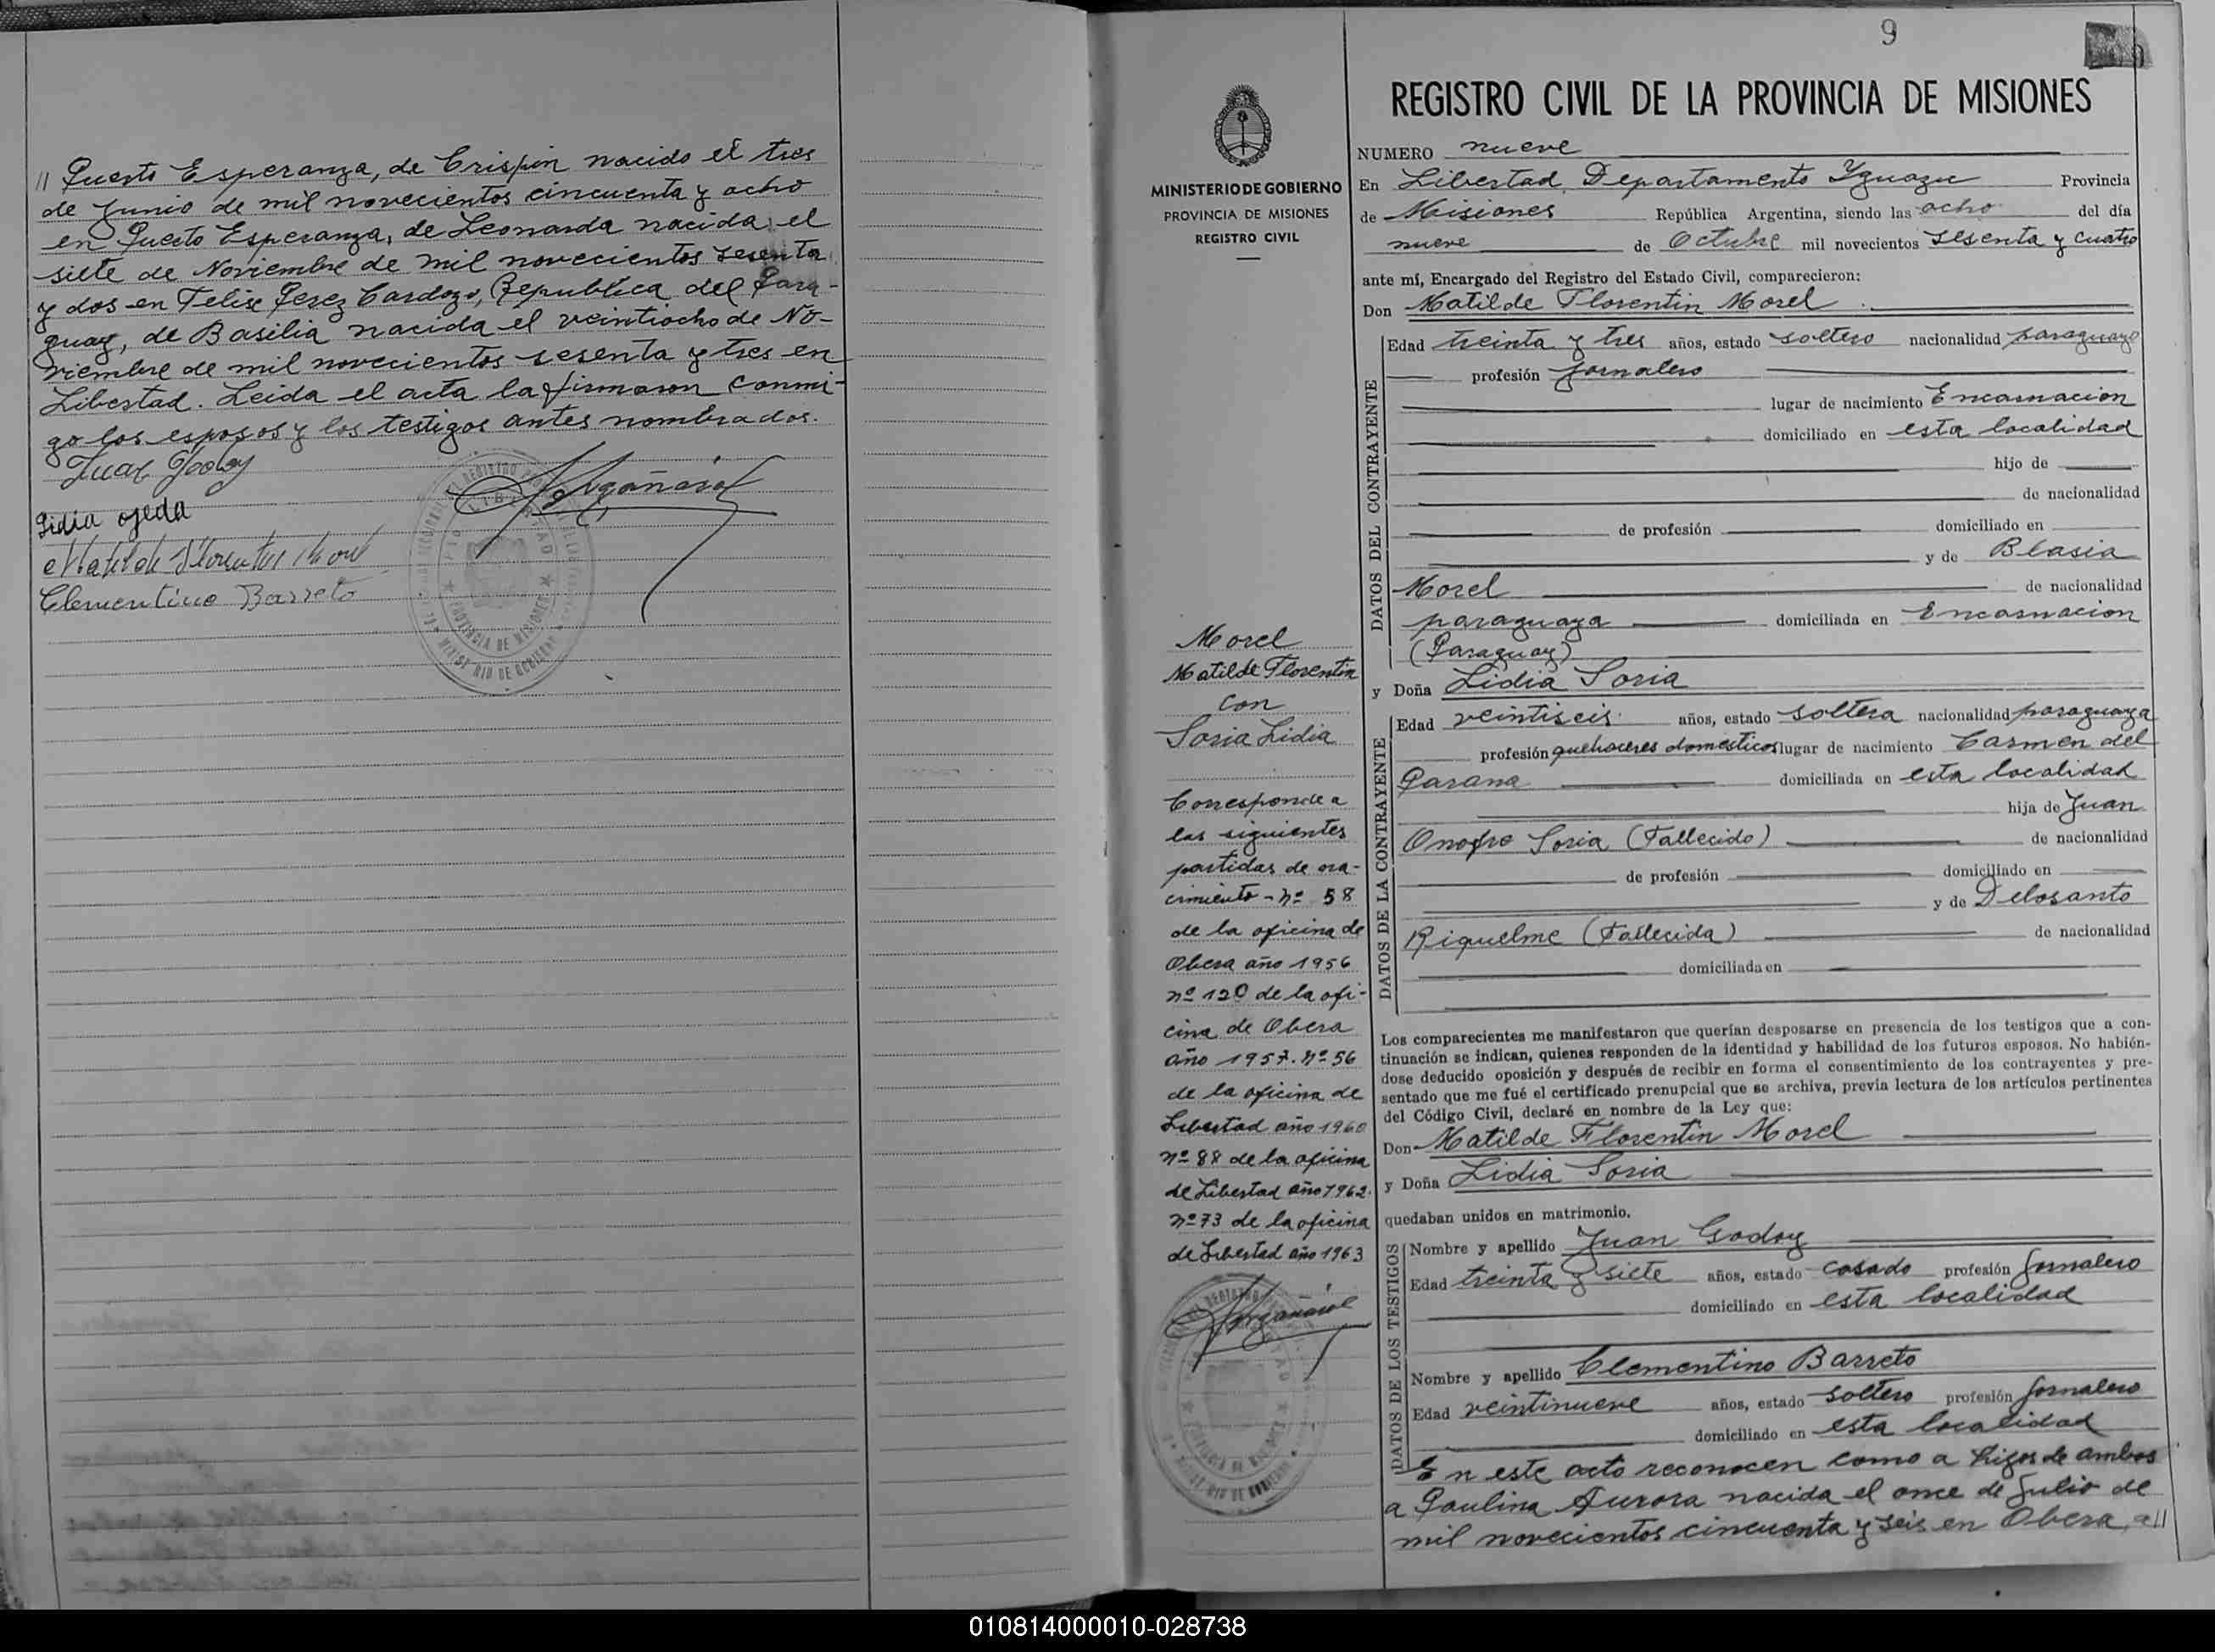 // Puerto Esperanza, de Crispin nacido el tres
de Junio de mil novecientos cincuenta y ocho
en Puerto Esperanza, de Leonarda nacida el
siete de Noviembre de mil novecientos sesenta
y dos en Felix Perez Cardozo, Republica del Para-
guay, de Basilia nacida el veintiocho de No-
viembre de mil novecientos sesenta y tres en
Libertad. Leida el acta la firmaron conmi-
go los esposos y los testigos antes nombrados.
Juan Godoy
Lidia ojeda
Matilde Florentin Morel
Clementino Barreto
PROVINCIA DE MISIONES
MINISTERIO DE GOBIERNO
9
MINISTERIO DE GOBIERNO
PROVINCIA DE MISIONES
REGISTRO CIVIL
Morel
Matilde Florentin
con
Soria Lidia
Corresponde a
las siguientes
partidas de na-
cimiento - nº 58
de la oficina de
Obera año 1956
nº 120 de la ofi-
cina de Obera
año 1957. nº 56
de la oficina de
Libertad año 1960
nº 88 de la oficina
de Libertad año 1962.
nº 73 de la oficina
de Libertad año 1963
REGISTRO CIVIL DE LA PROVINCIA DE MISIONES
NUMERO nueve
En Libertad, Departamento Yguazu Provincia
de Misiones República Argentina, siendo las ocho del día
nueve de Octubre mil novecientos sesenta y cuatro
ante mí, Encargado del Registro del Estado Civil, comparecieron:
Don Matilde Florentin Morel
DATOS DEL CONTRAYENTE
Edad treinta y tres años, estado soltero nacionalidad paraguayo
profesión jornalero
lugar de nacimiento Encarnacion
domiciliado en esta localidad
hijo de
de nacionalidad
de profesión domiciliado en
y de Blasia
Morel de nacionalidad
paraguaya domiciliada en Encarnacion
(Paraguay)
y Doña Lidia Soria
DATOS DE LA CONTRAYENTE
Edad veintiseis años, estado soltera nacionalidad paraguaya
profesión quehaceres domesticos lugar de nacimiento Carmen del
Parana domiciliada en esta localidad
hija de Juan
Onofre Soria (Fallecido) de nacionalidad
de profesión domiciliado en
y de Delosanto
Riquelme (Fallecida) de nacionalidad
domiciliada en
Los comparecientes me manifestaron que querían desposarse en presencia de los testigos que a con-
tinuación se indican, quienes responden de la identidad y habilidad de los futuros esposos. No habién-
dose deducido oposición y después de recibir en forma el consentimiento de los contrayentes y pre-
sentado que me fué el certificado prenupcial que se archiva, previa lectura de los artículos pertinentes
del Código Civil, declaré en nombre de la Ley que:
Don Matilde Florentin Morel
y Doña Lidia Soria
quedaban unidos en matrimonio.
DATOS DE LOS TESTIGOS
Nombre y apellido Juan Godoy
Edad treinta y siete años, estado casado profesión jornalero
domiciliado en esta localidad
Nombre y apellido Clementino Barreto
Edad veintinueve años, estado soltero profesión jornalero
domiciliado en esta localidad
En este acto reconocen como a hijos de ambos
a Paulina Aurora nacida el once de Julio de
mil novecientos cincuenta y seis en Obera, a //
010814000010-028738